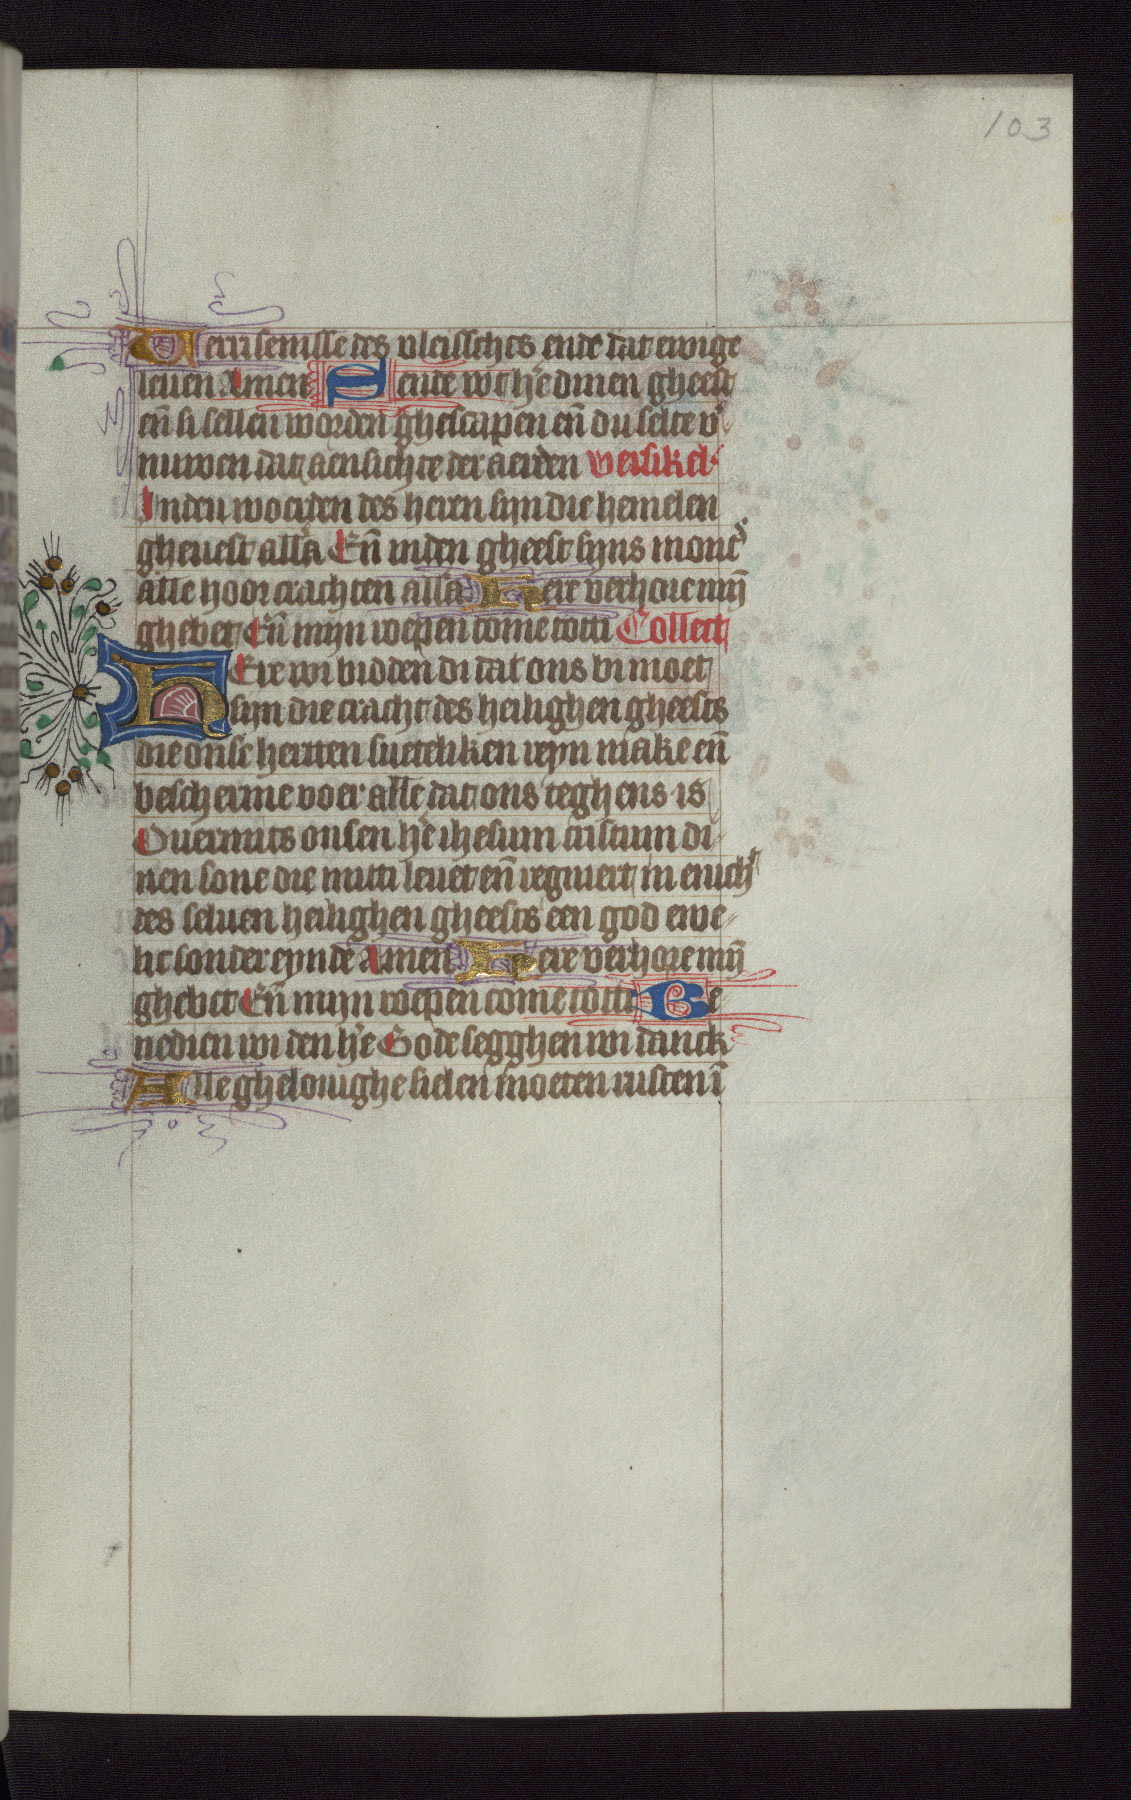 103
Verrisenisse des vleissches ende dat ewige
leuen Amen Sende wt he᷑ dinen gheest
en̄ si sellen worden ghescapen en̄ du selte v᷑
nuwen dat aensichte der aerden versikel
Inden woerden des heren sijn die hemelen
gheuest all'a En̄ inden gheest sijns monts
alle hoor crachten all'a Here verhore mijn̄
ghebet En̄ mijn roepen come totti Collect
HEre wi bidden di dat ons bi moet
sijn die cracht des heilighen gheests
die onse herten sueteliken reyn make en̄
bescherme voer alle dat ons teghens is
Ouermits onsen he᷑ ihesum cristum di-
nen sone die mitti leuet en̄ regniert in enich᷑
des seluen heilighen gheests een god ewe-
lic sonder eynde Amen Here verhore mijn̄
ghebet En̄ mijn roepen come totti Be
nedien wi den he᷑ Gode segghen wi danck
Alle ghelouighe sielen moeten rusten ī